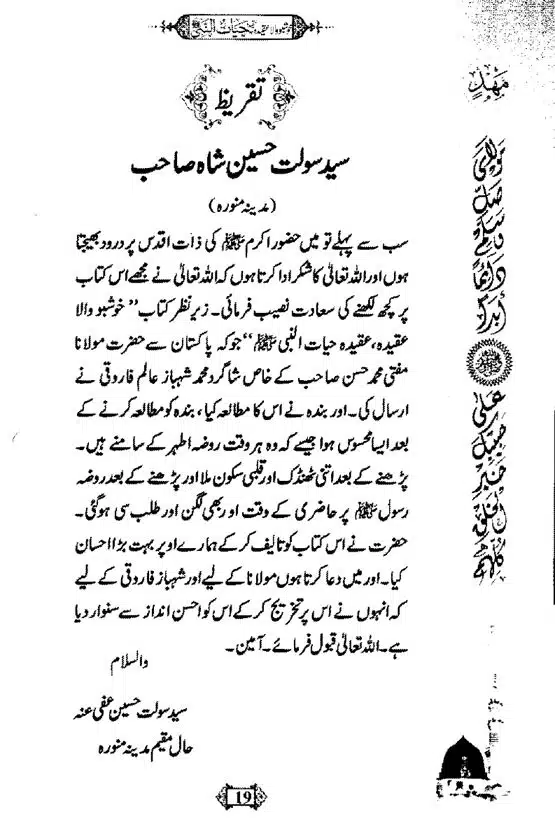 خوشبو والا عقیدہ حیات النبی ﷺ
تقریظ
سید سولت حسین شاہ صاحب
(مدینہ منورہ)
سب سے پہلے تو میں حضور اکرم ﷺ کی ذات اقدس پر درود بھیجتا
ہوں اور اللہ تعالیٰ کا شکر ادا کرتا ہوں کہ اللہ تعالیٰ نے مجھے اس کتاب
پر کچھ لکھنے کی سعادت نصیب فرمائی۔ زیر نظر کتاب "خوشبو والا
عقیدہ، عقیدہ حیات النبی ﷺ" جو کہ پاکستان سے حضرت مولانا
مفتی محمد حسن صاحب کے خاص شاگرد محمد شہباز عالم فاروقی نے
ارسال کی۔ اور بندہ نے اس کا مطالعہ کیا، بندہ کو مطالعہ کرنے کے
بعد ایسا محسوس ہوا جیسے کہ وہ ہر وقت روضہ اطہر کے سامنے ہیں۔
پڑھنے کے بعد اتنی ٹھنڈک اور قلبی سکون ملا اور پڑھنے کے بعد روضہ
رسول ﷺ پر حاضری کے وقت اور بھی لگن اور طلب سی ہو گئی۔
حضرت نے اس کتاب کو تالیف کر کے ہمارے اوپر بہت بڑا احسان
کیا۔ اور میں دعا کرتا ہوں مولانا کے لیے اور شہباز فاروقی کے لیے
کہ انہوں نے اس پر تخریج کر کے اس کو احسن انداز سے سنوار دیا
ہے۔ اللہ تعالیٰ قبول فرمائے۔ آمین۔
والسلام
سید سولت حسین عفی عنہ
حال مقیم مدینہ منورہ
19
مَولَایَ
صَلِّ
وَسَلِّمْ
دَائِمًا
أَبَدًا
ﷺ
عَلٰی
حَبِیْبِکَ
خَیْرِ
الْخَلْقِ
کُلِّهِمِ